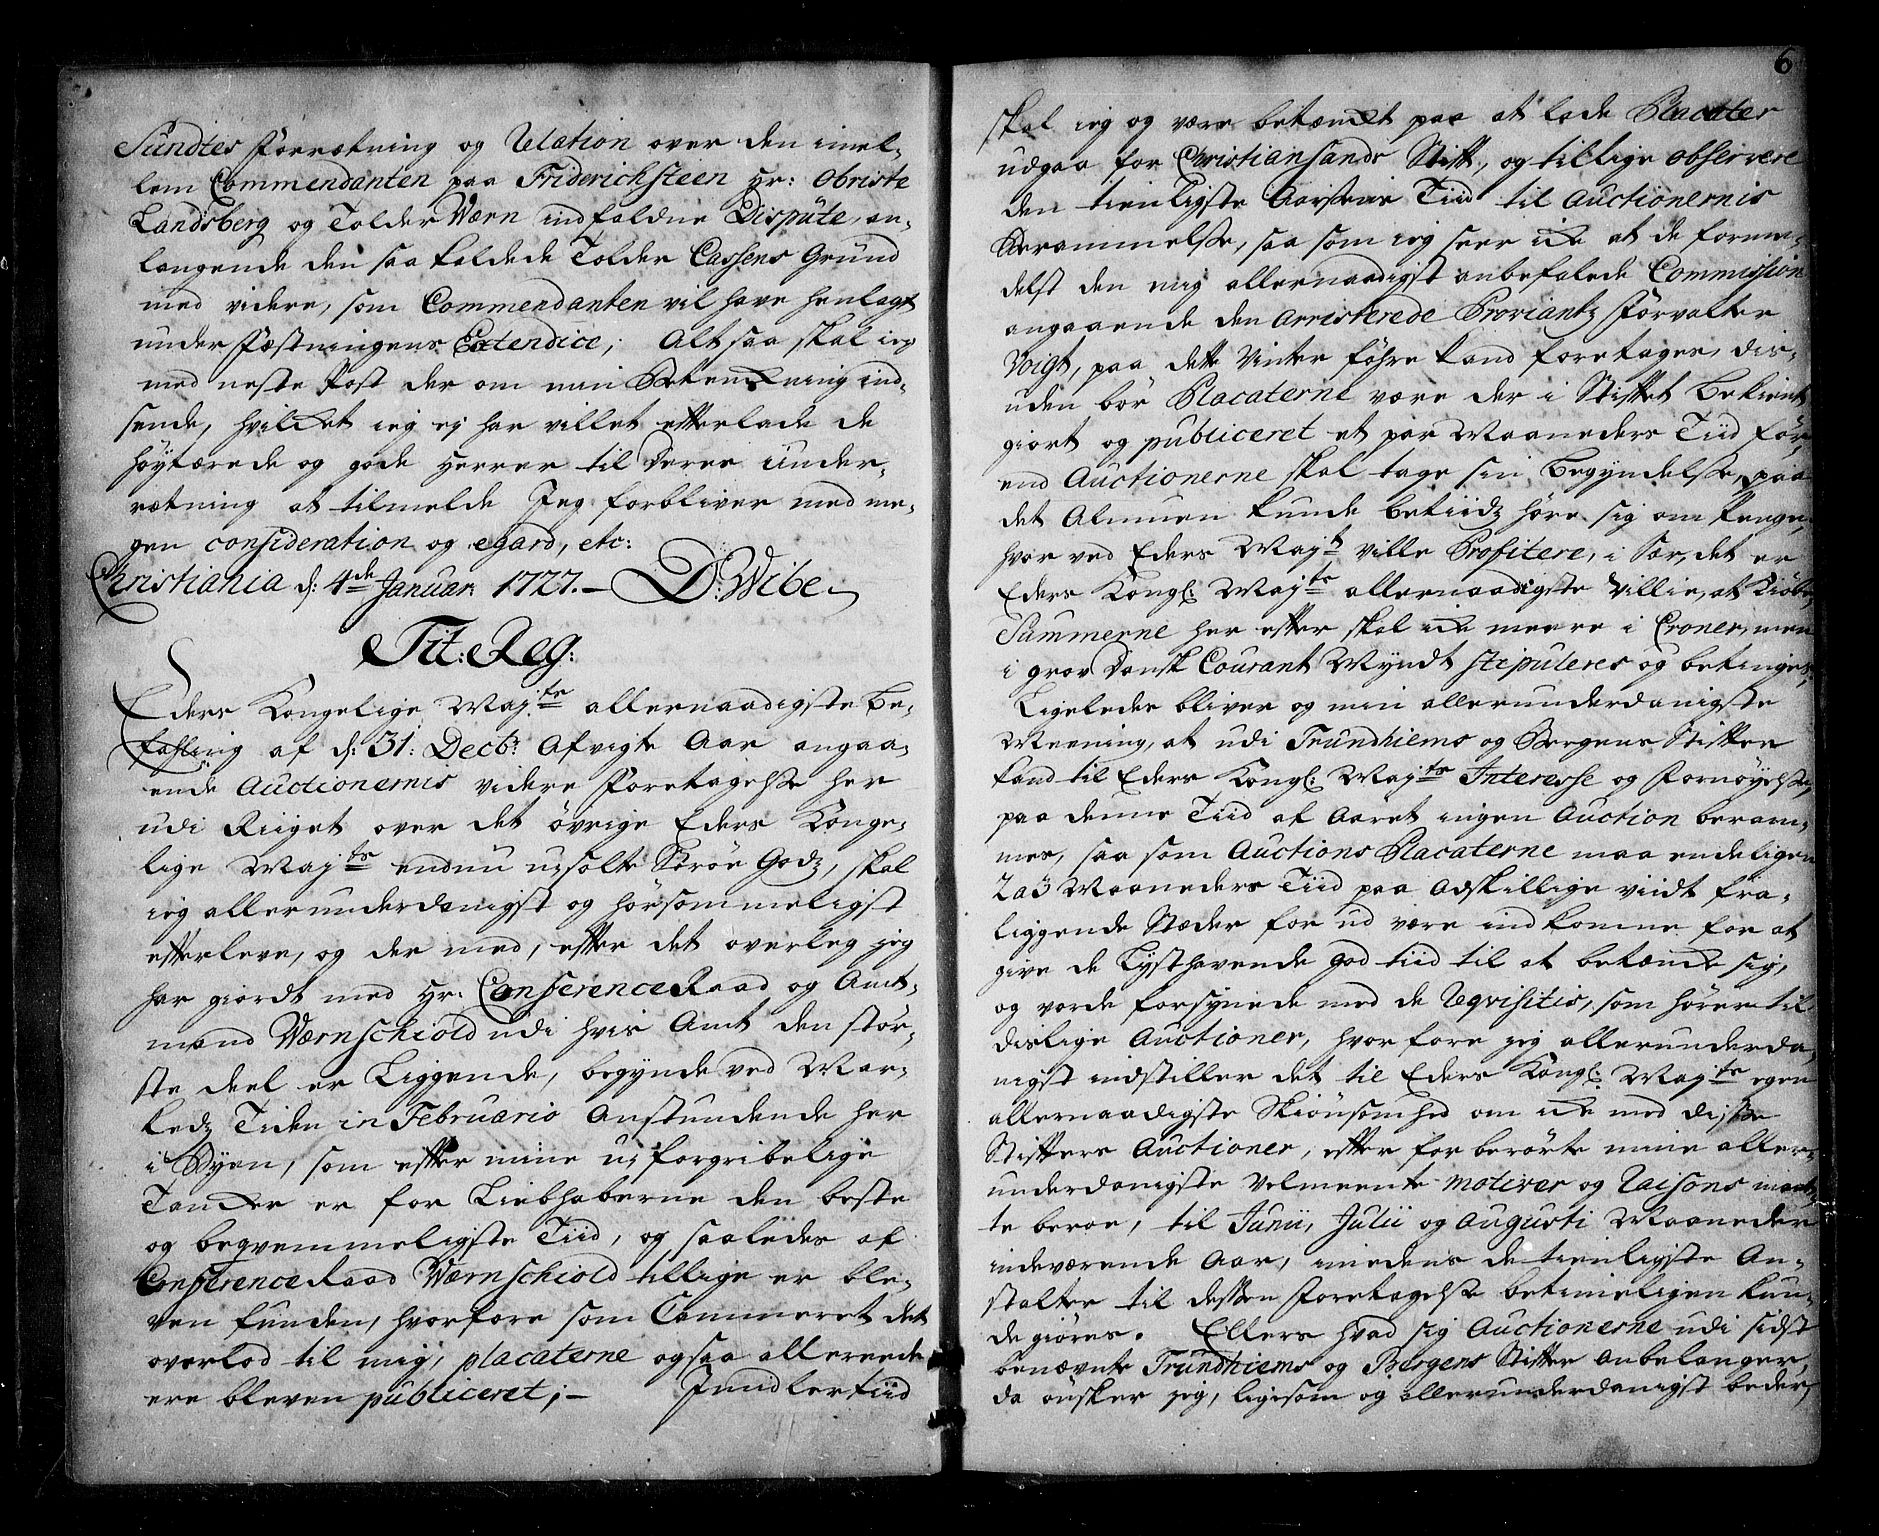 Sundtes Forretning og Relation over den imel-
lem Commendanten paa Friderichsteen Hr: Obriste
Landsberg og Tolder Wærn indfaldne Dispute, an-
langende den saa kaldede Tolder Cassens Grund
med videre, som Commendanten vil have henlagt
under Fæstningens Extendice; Alt saa skal ieg
med neste Post der om min Betenkning ind-
sende, hvilket ieg ej har villet efterlade de
høyærede og gode Herrer til Deres under-
retning at tilmelde Jeg forbliver med me-
gen consideration og egard, etc:
Christiania d: 4de Januar: 1727. – D: Wibe
Tit: Reg:
Eders Kongelige Majts allernaadigste Be-
faling af d: 31: Decbr: Afvigte Aar angaa-
ende Auctionernis videre Foretagelse her
udi Riiget over det øvrige Eders Konge-
lige Majts endnu usolte Kirke Godz, skal
ieg allerunderdanigst og hørsommeligst
efterleve, og der med, efter det overleg jeg
har giordt med Hr: Conference Raad og Amt-
mand Værnschiold udi hvis Amt den stør-
ste deel er Liggende, begynde ved Mar-
kedz Tiden in Februario Anstundende her
i Byen, som efter mine uforgribelige
Tanker er for Liebhaberne den beste
og beqvemmeligste Tiid, og saaledes af
Conference Raad Værnschiold tillige er ble-
ven funden, hvorfore som Cammeret det
overlod til mig, placaterne ogsaa allereede
ere bleven publiceret; – Imidlertiid
6
skal ieg og være betænkt paa at lade Placater
udgaa for Christiansands Stift, og tillige observere
den tienligste Aarsens Tiid til Auctionernis
Berammelse, saa som ieg seer ike at de forme-
delst den mig allernaadigst anbefalede Commission
angaaende den Arresterede Proviantz Forvalter
Voigt, paa dette Vinter føhre kand foretages, des-
uden bør Placaterne være der i Stiftet Bekient
giort og publiceret et par Maaneders Tiid før
end Auctionerne skal tage sin Begyndelse, paa
det Almuen kunde betiidz høre sig om Penge,
hvor ved Eders Majt ville Profitere, i Sær, det er
Eders Kongl: Majts allernaadigste Villie, at Kiøbe
Summerne her efter skal ike meere i Croner, men
i grov Dansk Courant Myndt stipuleres og betinges;
Ligeledes bliver og min allerunderdanigste
Meening, at udi Trundhiems og Bergens Stifter
kand til Eders Kongl: Majts Interesse og Fornøyelse,
paa denne Tiid af Aaret ingen Auction beram-
mes, saa som Auctions Placaterne maa endeligen
2 a 3 Maaneders Tiid paa Adskillige viidt fra-
liggende Stæder for ud være indkomne for at
give de Lysthavende god tiid til at betænke sig,
og vorde forsynede med de Reqvisitis, som hører til
deslige Auctioner, hvor fore jeg allerunderda-
nigst indstiller det til Eders Kongl: Majts egen
allernaadigste Skiønsomhed om ike med disse
Stifters Auctioner, efter forberørte mine aller-
underdanigste Velmeente motiver og Raisons maat-
te beroe, til Junii, Julii og Augusti Maaneder
indeværende Aar, imedens de tienligste An-
stalter til dessen Foretagelse betimeligen kun-
de giøres. Ellers hvad sig Auctionerne udi sidst
benævnte Trundhiems og Bergens Stifter Anbelanger,
da ønsker jeg, ligesom og allerunderdanigst beder,